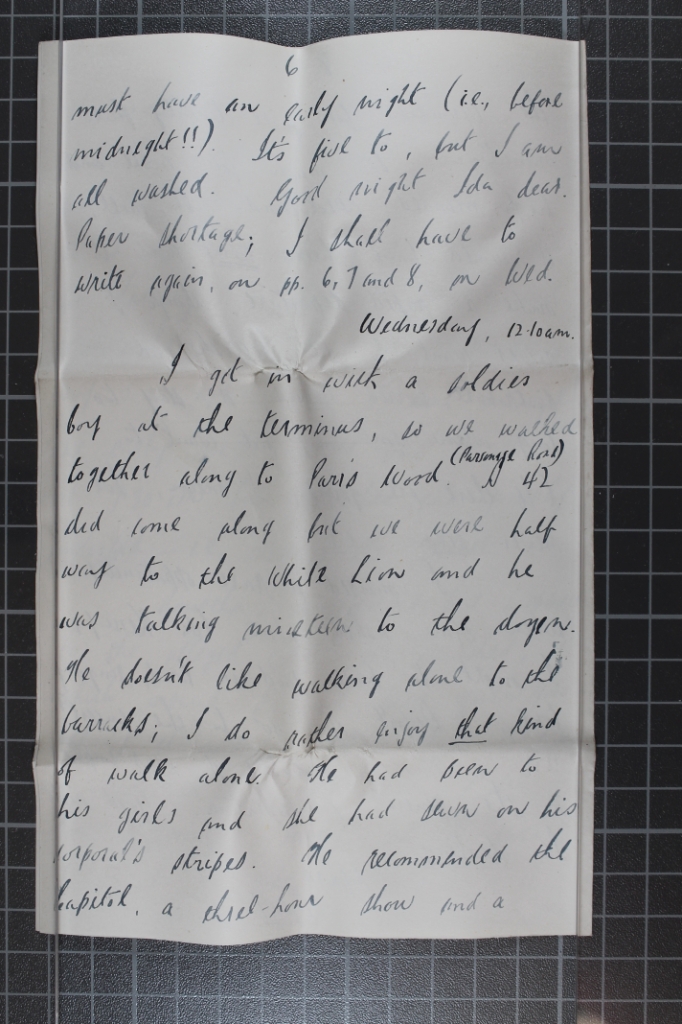 6
must have an early night (i.e., before
midnight!!). It's five to, but I am
all washed. Good night Ida dear.
Paper shortage; I shall have to
write again, on pp. 6, 7 and 8, on Wed.
Wednesday, 12.10am.
I got in with a soldier
boy at the terminus, so we walked
together along to Paris Wood (Parsonage Road). A 42
did come along but we were half
way to the White Lion and he
was talking nineteen to the dozen.
He doesn't like walking alone to the
barracks; I do rather enjoy that kind
of walk alone. He had been to
his girls and she had sewn on his
corporal's stripes. He recommended the
Capitol, a three-hour show and a